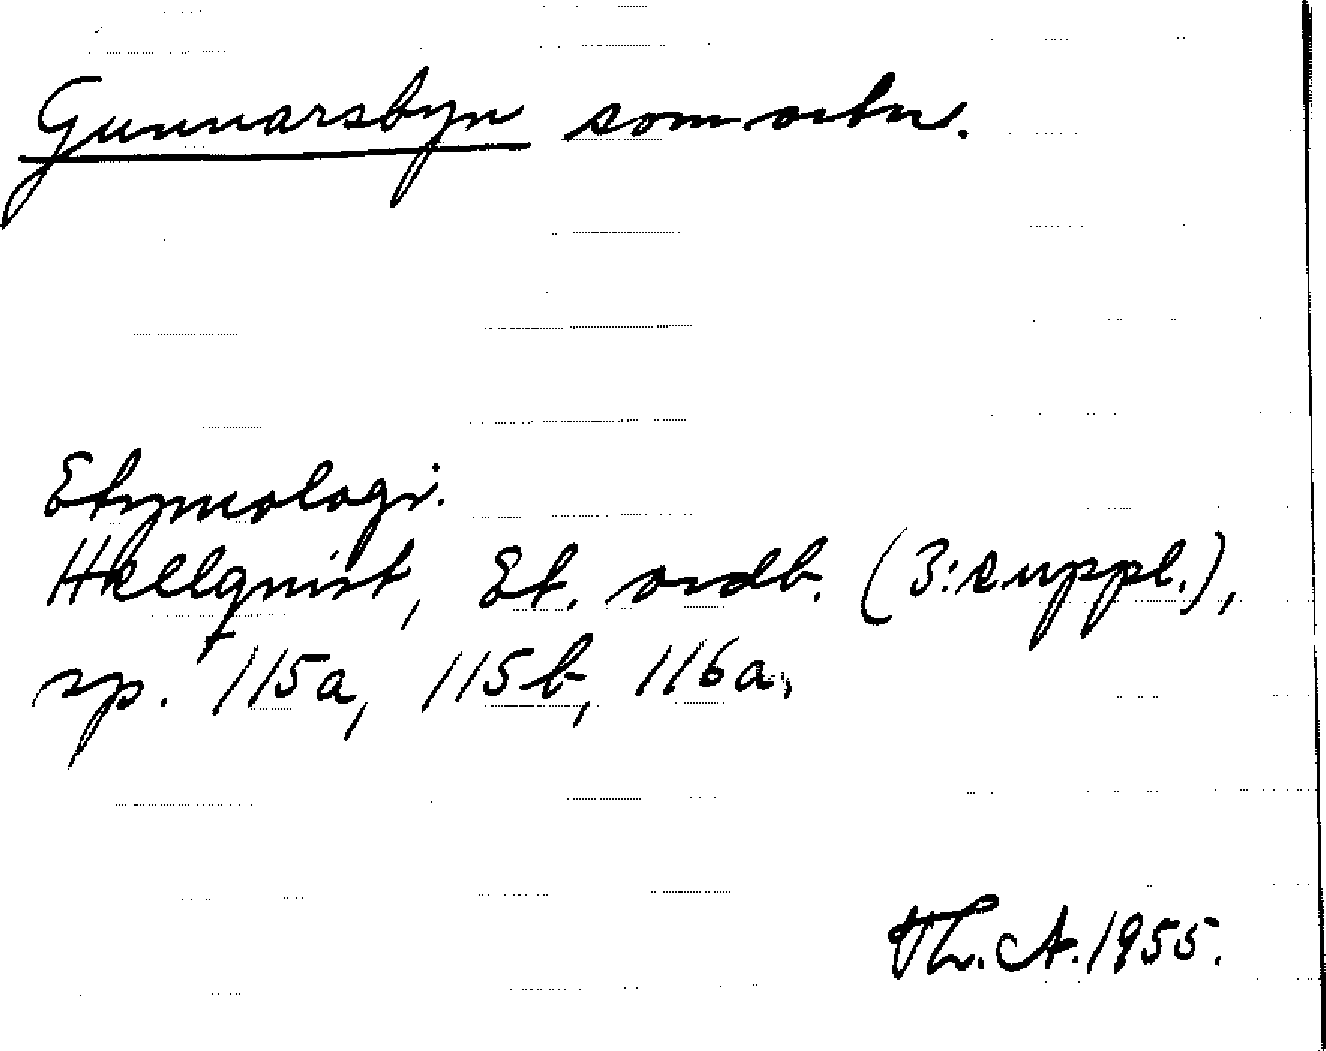 Gunnarsbyn som ortn.
Etymologi.
Hellquist, Et. ordb. (3:e uppl.),
sp. 115a, 115b, 116a.
Th. A. 1955.